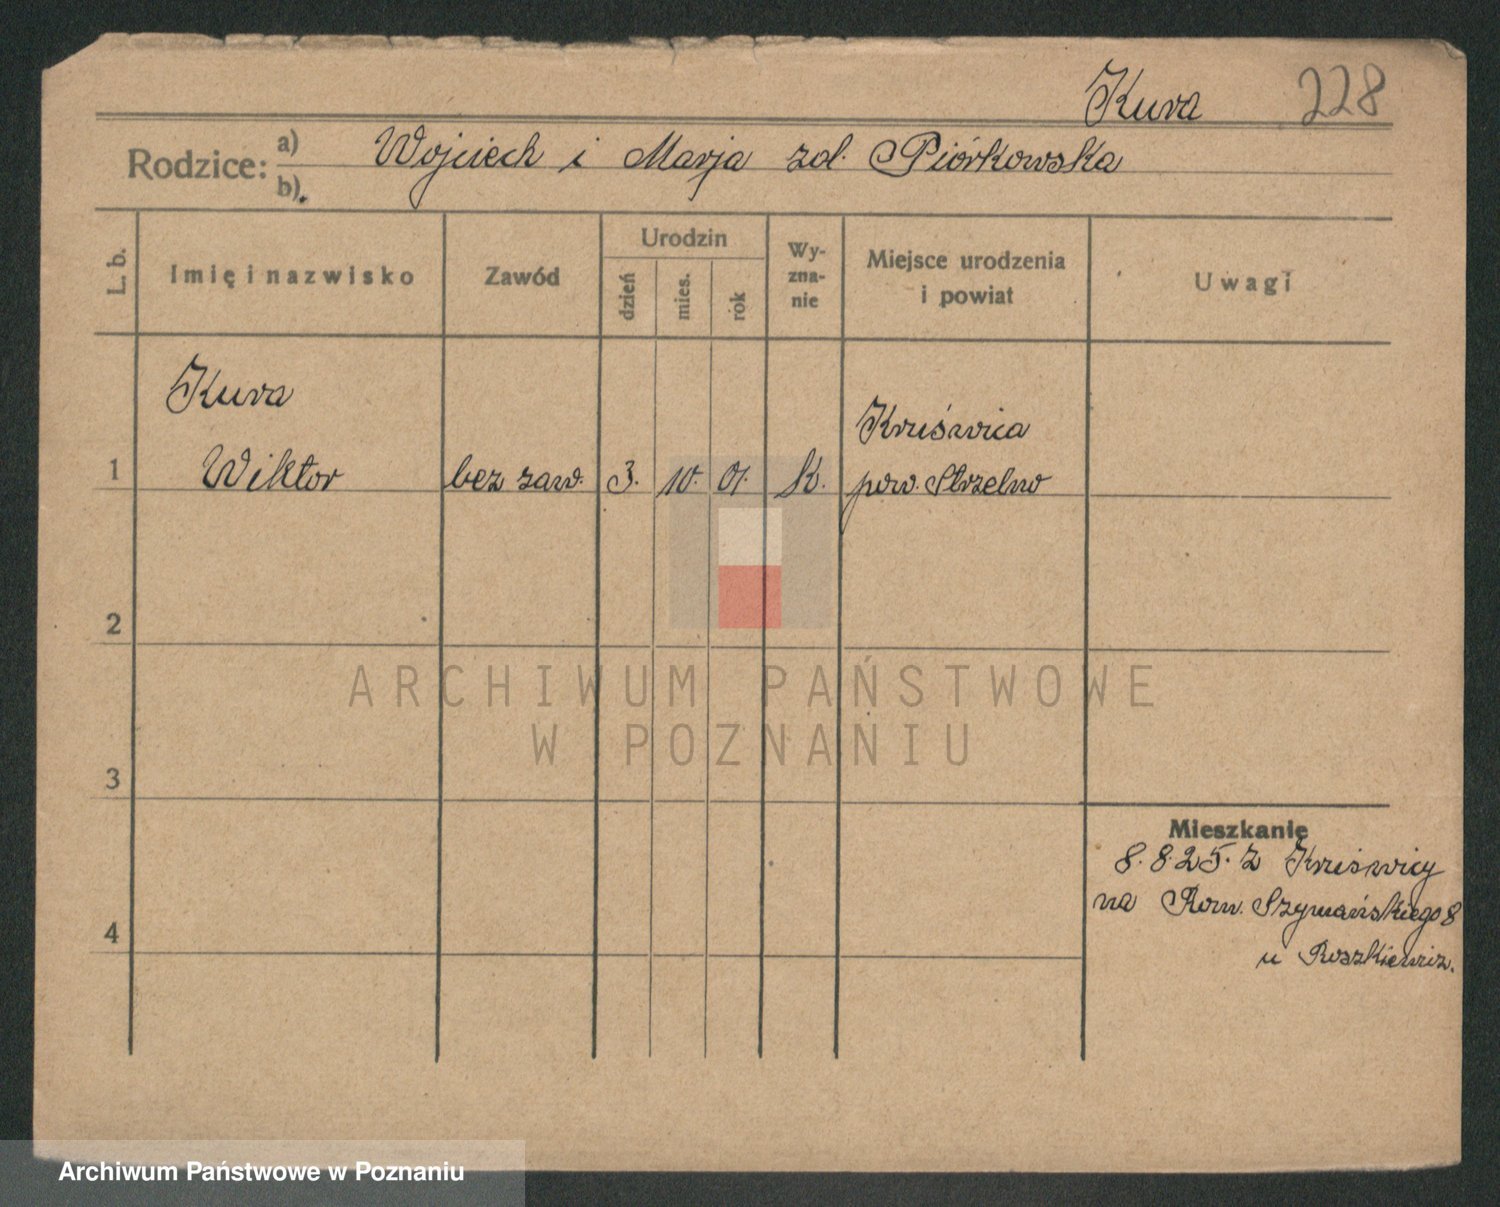 Kura 228
Rodzice: a) b) Wojciech i Marja zd. Piórkowska
L. b. Imię i nazwisko Zawód Urodzin dzień mies. rok Wy-zna-nie Miejsce urodzenia i powiat Uwagi
Kura
1 Wiktor bez zaw. 3. 10. 01. k. Kruświca
pow. Strzelno
2
3
4
Mieszkanie
8.8.25. z Kruświcy
na Rom. Szymańskiego 8
u Roszkiewicz.
ARCHIWUM PAŃSTWOWE
W POZNANIU
Archiwum Państwowe w Poznaniu